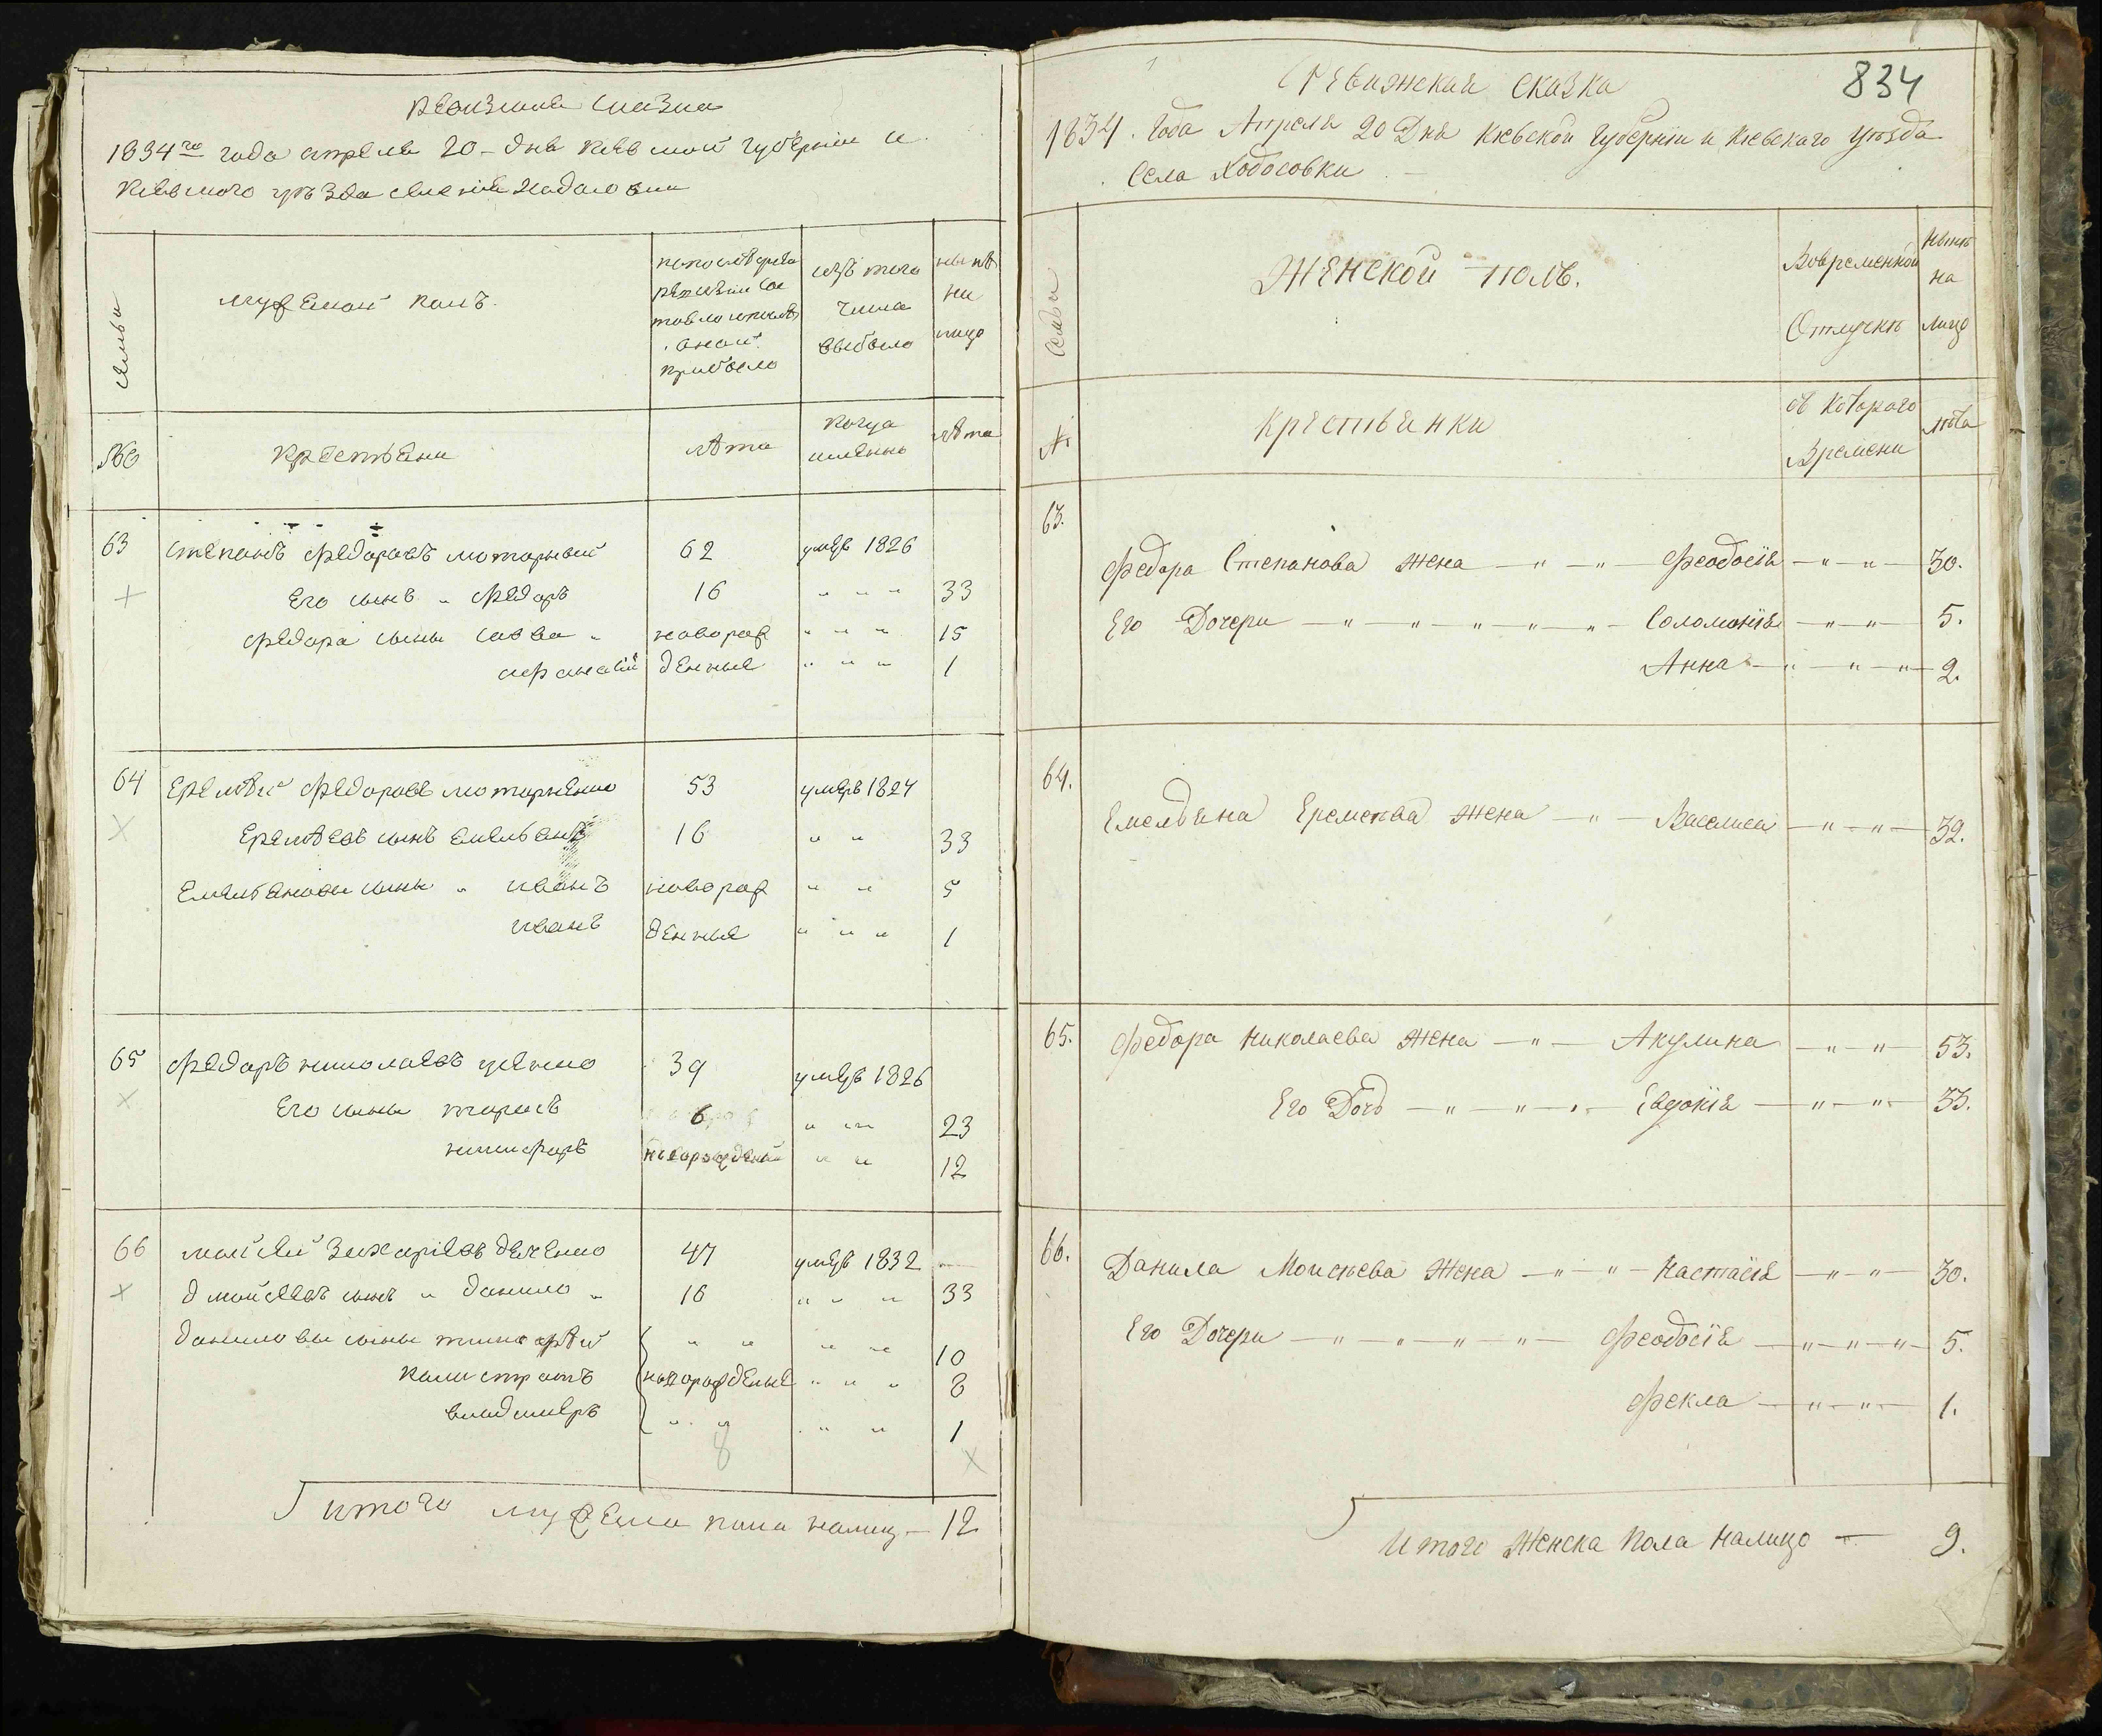 Ревизская сказка
1834го года апреля 20 - дня киевской губернии и
киевского уѣзда селения ходосовки
семьи
мужеской полъ.
по последней
ревизии со
стояло и после
оной
прибыло
изъ того
числа
выбыло
нынѣ
на
лицо
№
крестьяне
лѣта
когда
именно
лѣта
63 степанъ федоровъ моторный 62 умеръ 1826
его сынъ " федоръ 16 " " " 33
федора сыны савва " новорож " " " 15
афанасій денные " " " 1
64 еремѣй федоровъ моторненко 53 умеръ 1824
еремѣевъ сынъ емельянъ 16 " " 33
емельяновы сыны " иванъ новорож " " 5
иванъ денные " " " 1
65 федоръ николаевъ 39 умеръ 1826
его сыны тарасъ 6 " " 23
никифоръ новорожденый " " 12
66 мойсей захаріевъ деченко 47 умеръ 1832
мойсеевъ сынъ " данило " 16 " " " 33
даниловы сыны тимофѣй " " " " 10
калистратъ новорожденые " " " 8
владимеръ " " " " 1
8
итого мужеска пола налицо — 12
834
Ревижская сказка
1834. Года Апреля 20 Дня Киевской Губерніи и Киевскаго Уѣзда
Села Ходосовки
Семьи
Женской полъ.
Вовременной
Отлучкѣ
Нынѣ
на
лицо
№
Крестьянки
съ Которого
Времени
лѣта
63.
Федора Степанова жена — " — " — Феодосія — " — " — 30.
Его Дочери — " — " — " — " — " — Соломонія — " — " — 5.
Анна — " — " — " — 2.
64.
Емельяна Еремѣева жена — " — Василиса — " — " — 32.
65. Федора Николаева жена — " — Акулина — " — " — 53.
Его Дочь — " — " — " — Евдокія — " — " — 33.
66.
Данила Моисѣева Жена — " — " — Настасія — " — " — 30.
Его Дочери — " — " — " — " — Феодосія — " — " — " — 5.
Фекла — " — " — 1.
Итого Женска Пола Налицо — 9.